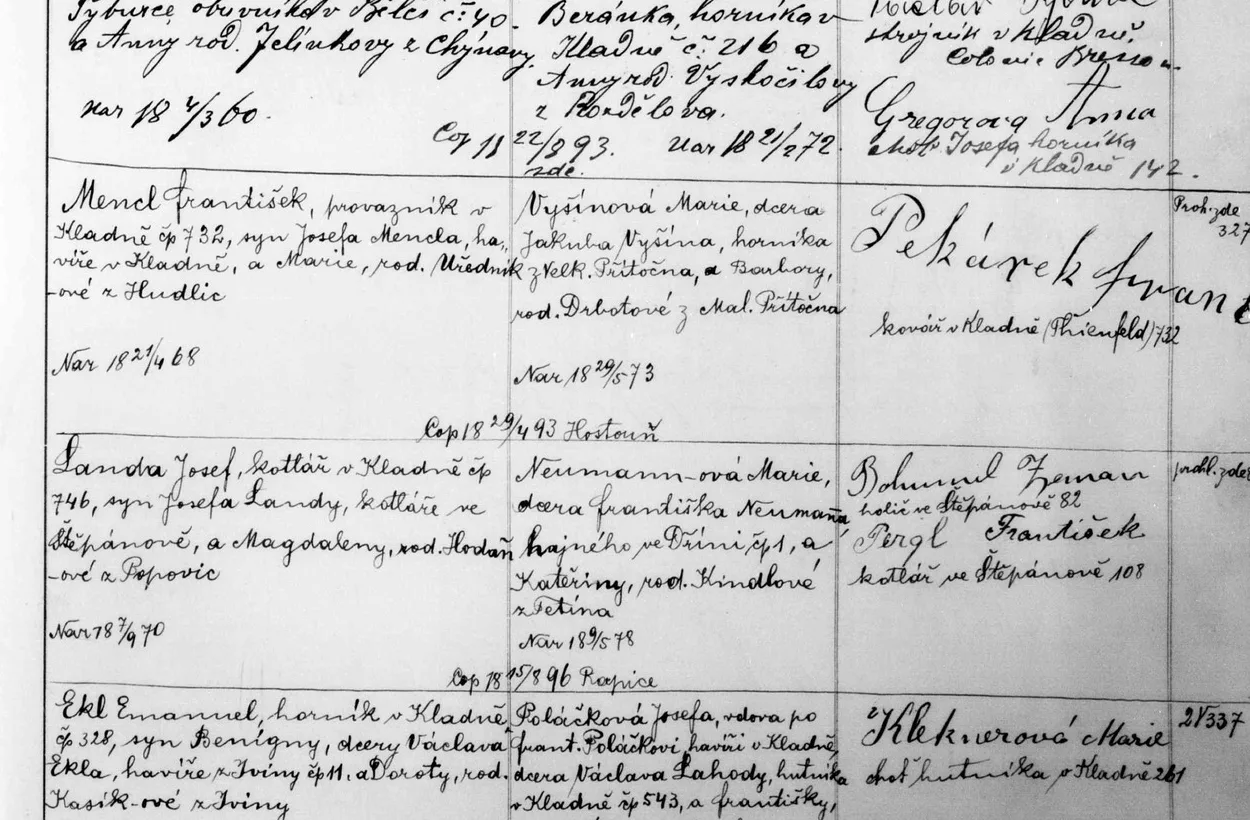 Tyburce obuvníka v Bělči č: 40.
a Anny roz. Jelínkovy z Chyňavy.
nar 18 4/3 60.
Beránka, horníka v
Kladně č: 216 a
Anny roz. Vyskočilovy
z Rozdělova.
Cop 18 22/8 93. Nar 18 21/2 72.
zde.
strojník v Kladně.
Colonie
Gregorova Anna
choť Josefa horníka
v Kladně 142.
Mencl František, provazník v
Kladně čp 732, syn Josefa Mencla, ha„
víře v Kladně, a Marie, roz. Úředník
-ové z Hudlic
Nar 18 21/4 68
Vyšínová Marie, dcera
Jakuba Vyšína, horníka
z Velk. Přítočna, a Barbory,
roz. Drbotové z Mal. Přítočna
Nar 18 29/5 73
Cop 18 29/4 93 Hostouň
Pekárek Frant
kovář v Kladně (Thienfeld) 732
Proh. zde
327
Landa Josef, kotlář v Kladně čp
746, syn Josefa Landy, kotláře ve
Štěpánově, a Magdaleny, roz. Hodaň
-ové z Popovic
Nar 18 7/9 70
Neumann-ová Marie,
dcera Františka Neumanna
hajného ve Dříni čp 1, a
Kateřiny, roz. Kindlové
z Tetína
Nar 18 9/5 78
Cop 18 15/8 96 Rapice
Bohumil Zeman
holič ve Štěpánově 82
Pergl František
kotlář ve Štěpánově 108
prohl. zde
Ekl Emanuel, horník v Kladně
čp 328, syn Benigny, dcery Václava
Ekla, havíře z Iviny čp 11, a Doroty, roz.
Kasík-ové z Iviny
Poláčková Josefa, vdova po
Frant. Poláčkovi, havíři v Kladně,
dcera Václava Lahody, hutníka
v Kladně čp 543, a Františky,
Kleknerová Marie
choť hutníka v Kladně 261
2V337